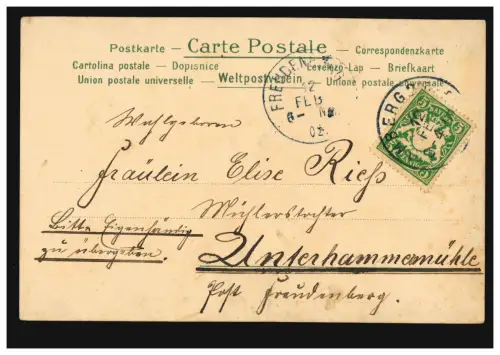 Postkarte – Carte Postale – Correspondenzkarte
Cartolina postale – Dopisnice Levelezö-Lap – Briefkaart
Union postale universelle – Weltpostverein – Unione postale universale
12
FEB
Wohlgeboren
Fräulein Elise Rieß
Müllerstochter
Bitte Eigenhändig
zu übergeben.
Unterhammermühle
Post Freudenberg.